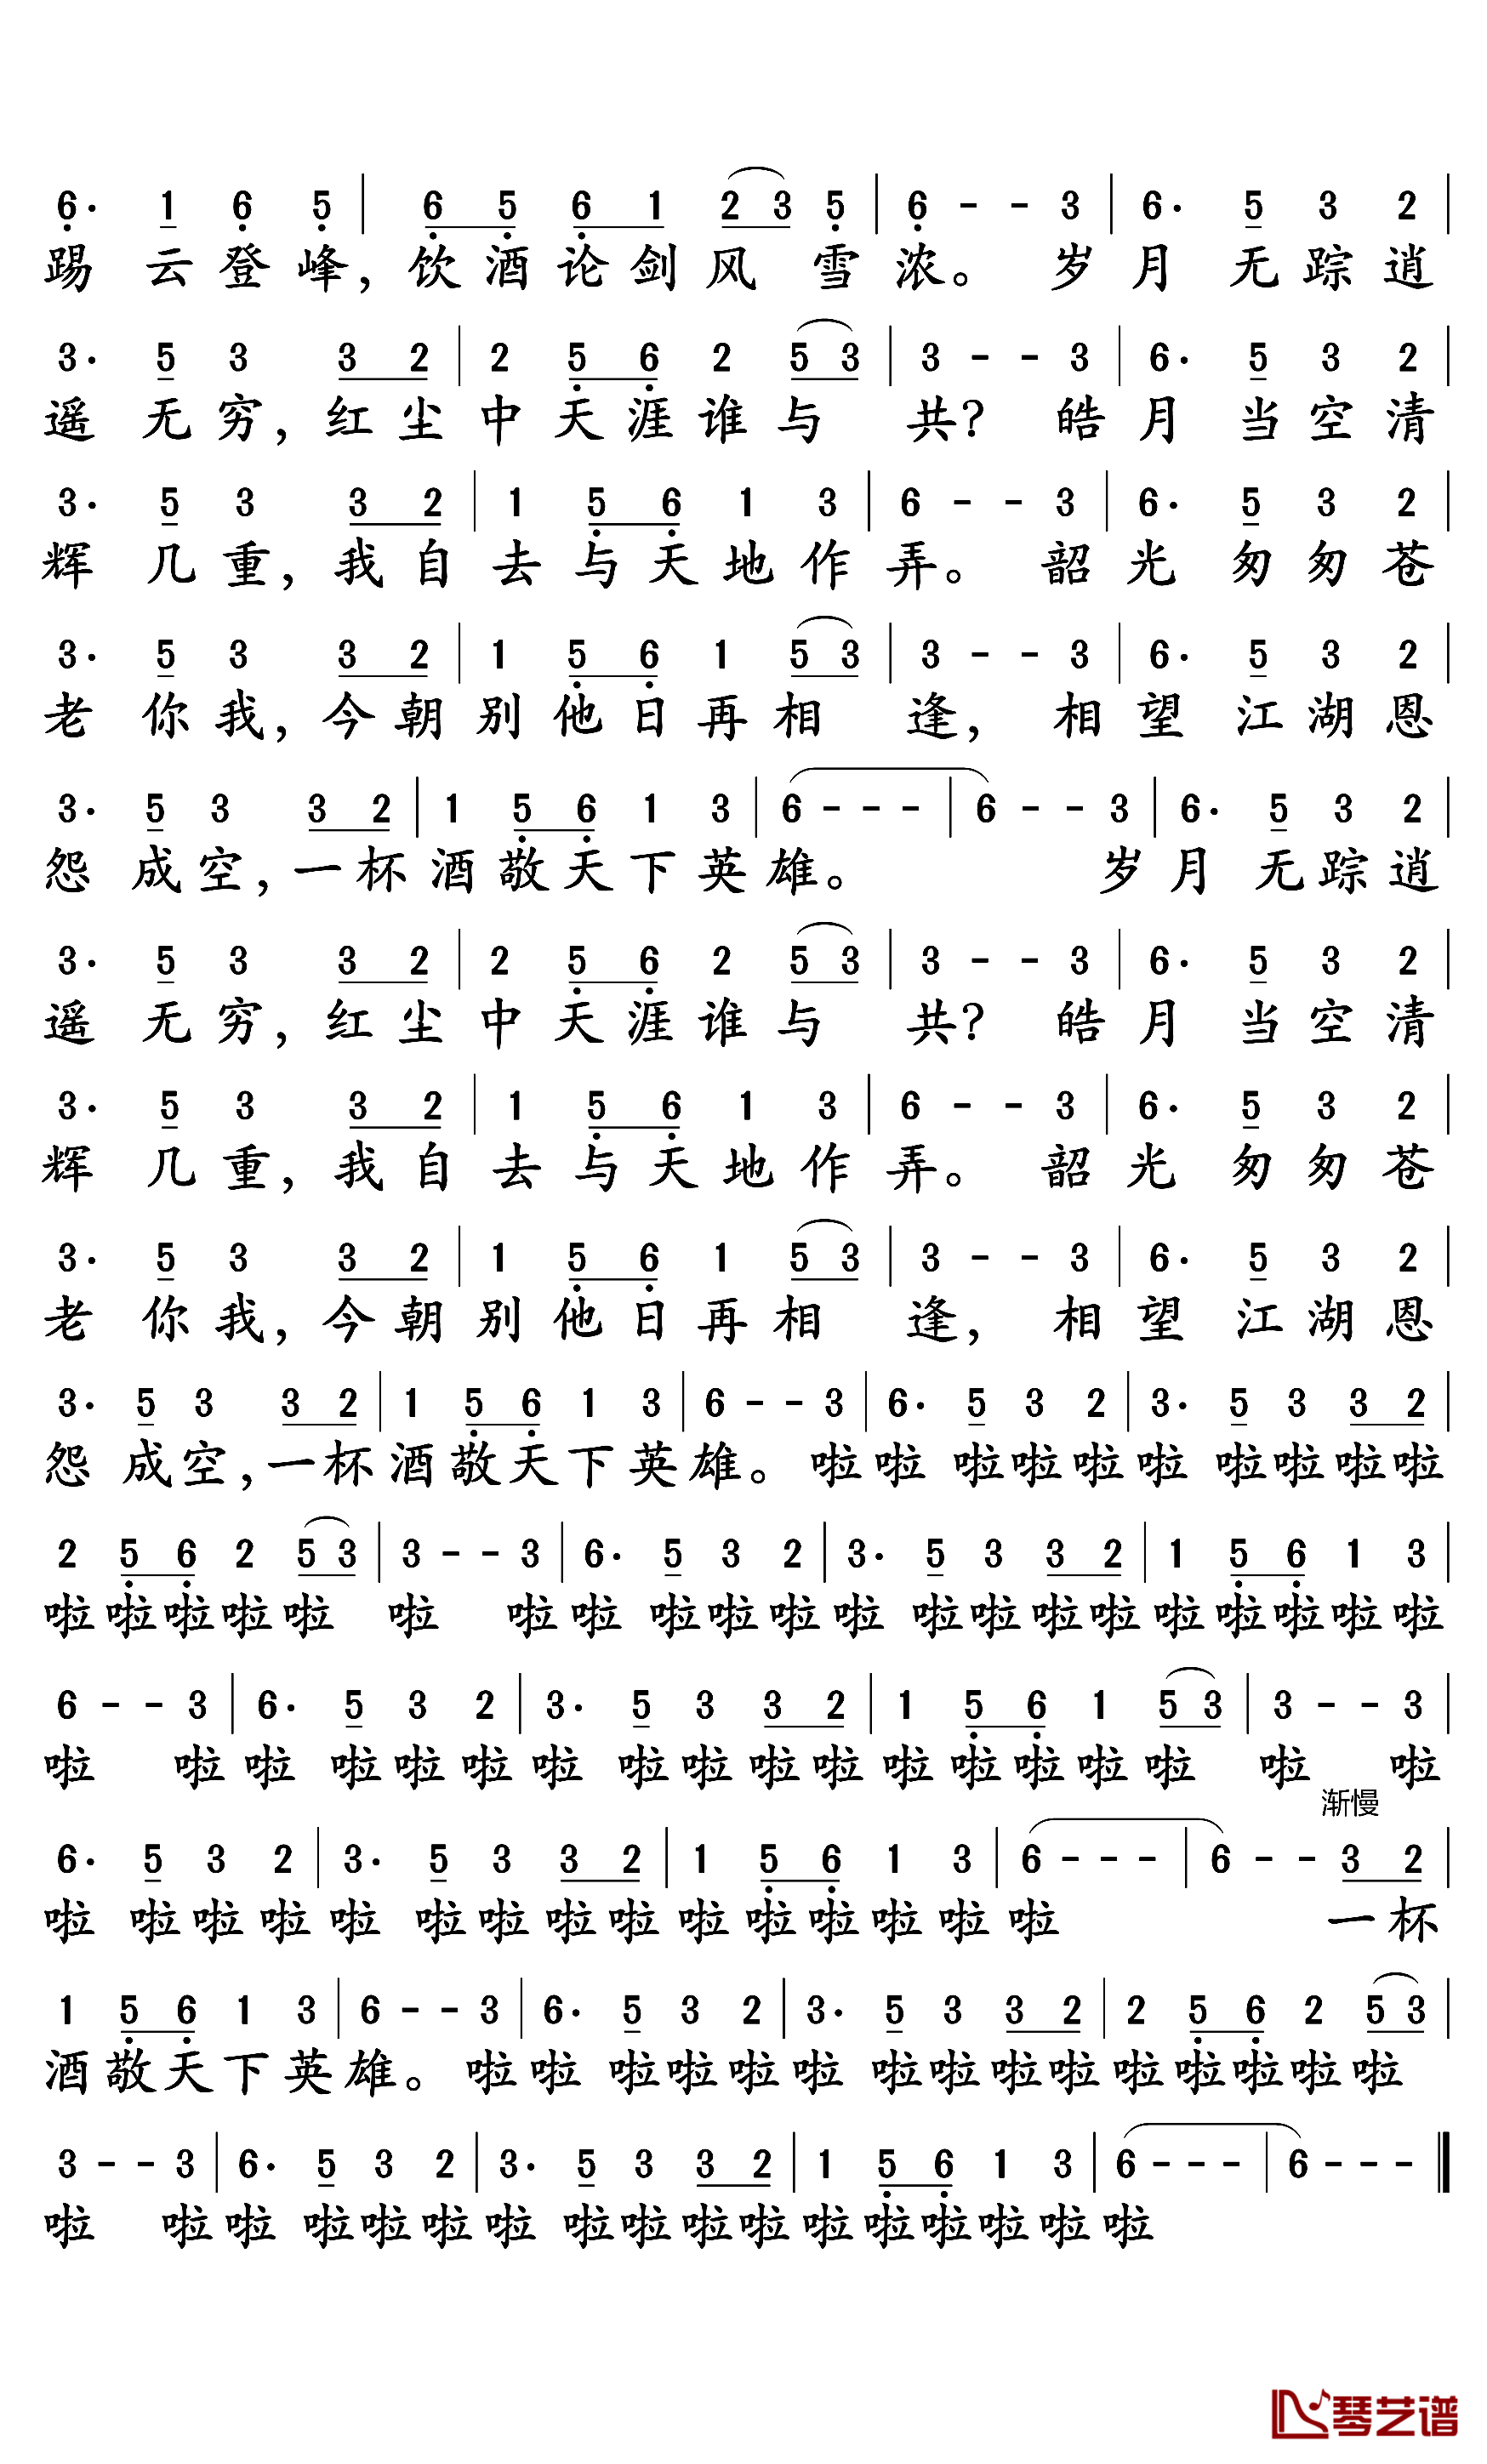 6· 1 6 5 | 6 5 6 1 2 3 5 | 6 - - 3 | 6· 5 3 2 |
踢云登峰，饮酒论剑风雪浓。岁月无踪逍
3· 5 3 3 2 | 2 5 6 2 5 3 | 3 - - 3 | 6· 5 3 2 |
遥无穷，红尘中天涯谁与共？皓月当空清
3· 5 3 3 2 | 1 5 6 1 3 | 6 - - 3 | 6· 5 3 2 |
辉几重，我自去与天地作弄。韶光匆匆苍
3· 5 3 3 2 | 1 5 6 1 5 3 | 3 - - 3 | 6· 5 3 2 |
老你我，今朝别他日再相逢，相望江湖恩
3· 5 3 3 2 | 1 5 6 1 3 | 6 - - - | 6 - - 3 | 6· 5 3 2 |
怨成空，一杯酒敬天下英雄。岁月无踪逍
3· 5 3 3 2 | 2 5 6 2 5 3 | 3 - - 3 | 6· 5 3 2 |
遥无穷，红尘中天涯谁与共？皓月当空清
3· 5 3 3 2 | 1 5 6 1 3 | 6 - - 3 | 6· 5 3 2 |
辉几重，我自去与天地作弄。韶光匆匆苍
3· 5 3 3 2 | 1 5 6 1 5 3 | 3 - - 3 | 6· 5 3 2 |
老你我，今朝别他日再相逢，相望江湖恩
3· 5 3 3 2 | 1 5 6 1 3 | 6 - - 3 | 6· 5 3 2 | 3· 5 3 3 2 |
怨成空，一杯酒敬天下英雄。啦啦啦啦啦啦啦啦啦啦
2 5 6 2 5 3 | 3 - - 3 | 6· 5 3 2 | 3· 5 3 3 2 | 1 5 6 1 3 |
啦啦啦啦啦啦啦啦啦啦啦啦啦啦啦啦啦啦啦啦啦
6 - - 3 | 6· 5 3 2 | 3· 5 3 3 2 | 1 5 6 1 5 3 | 3 - - 3 |
啦啦啦啦啦啦啦啦啦啦啦啦啦啦啦啦啦啦
渐慢
6· 5 3 2 | 3· 5 3 3 2 | 1 5 6 1 3 | 6 - - - | 6 - - 3 2 |
啦啦啦啦啦啦啦啦啦啦啦啦啦啦啦一杯
1 5 6 1 3 | 6 - - 3 | 6· 5 3 2 | 3· 5 3 3 2 | 2 5 6 2 5 3 |
酒敬天下英雄。啦啦啦啦啦啦啦啦啦啦啦啦啦啦啦
3 - - 3 | 6· 5 3 2 | 3· 5 3 3 2 | 1 5 6 1 3 | 6 - - - | 6 - - - ‖
啦啦啦啦啦啦啦啦啦啦啦啦啦啦啦啦啦
琴艺谱